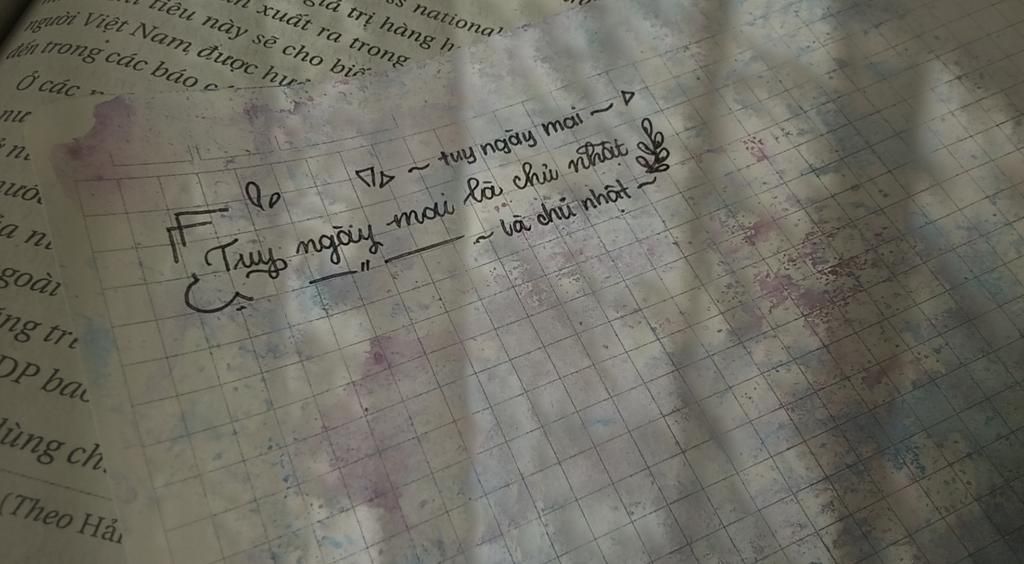 s national
giá trị hàng h
n xuất ra trong
tiêu này sẽ cho biế
người Việt Nam được hư
đến trong các báo c
Ở các
~ tuy ngãy mai ~
Tuy ngãy mai lã chủ nhật
~ lã chủ nhật ~
goài
ng tr
DP ba
dùng ch
(Theo Hả